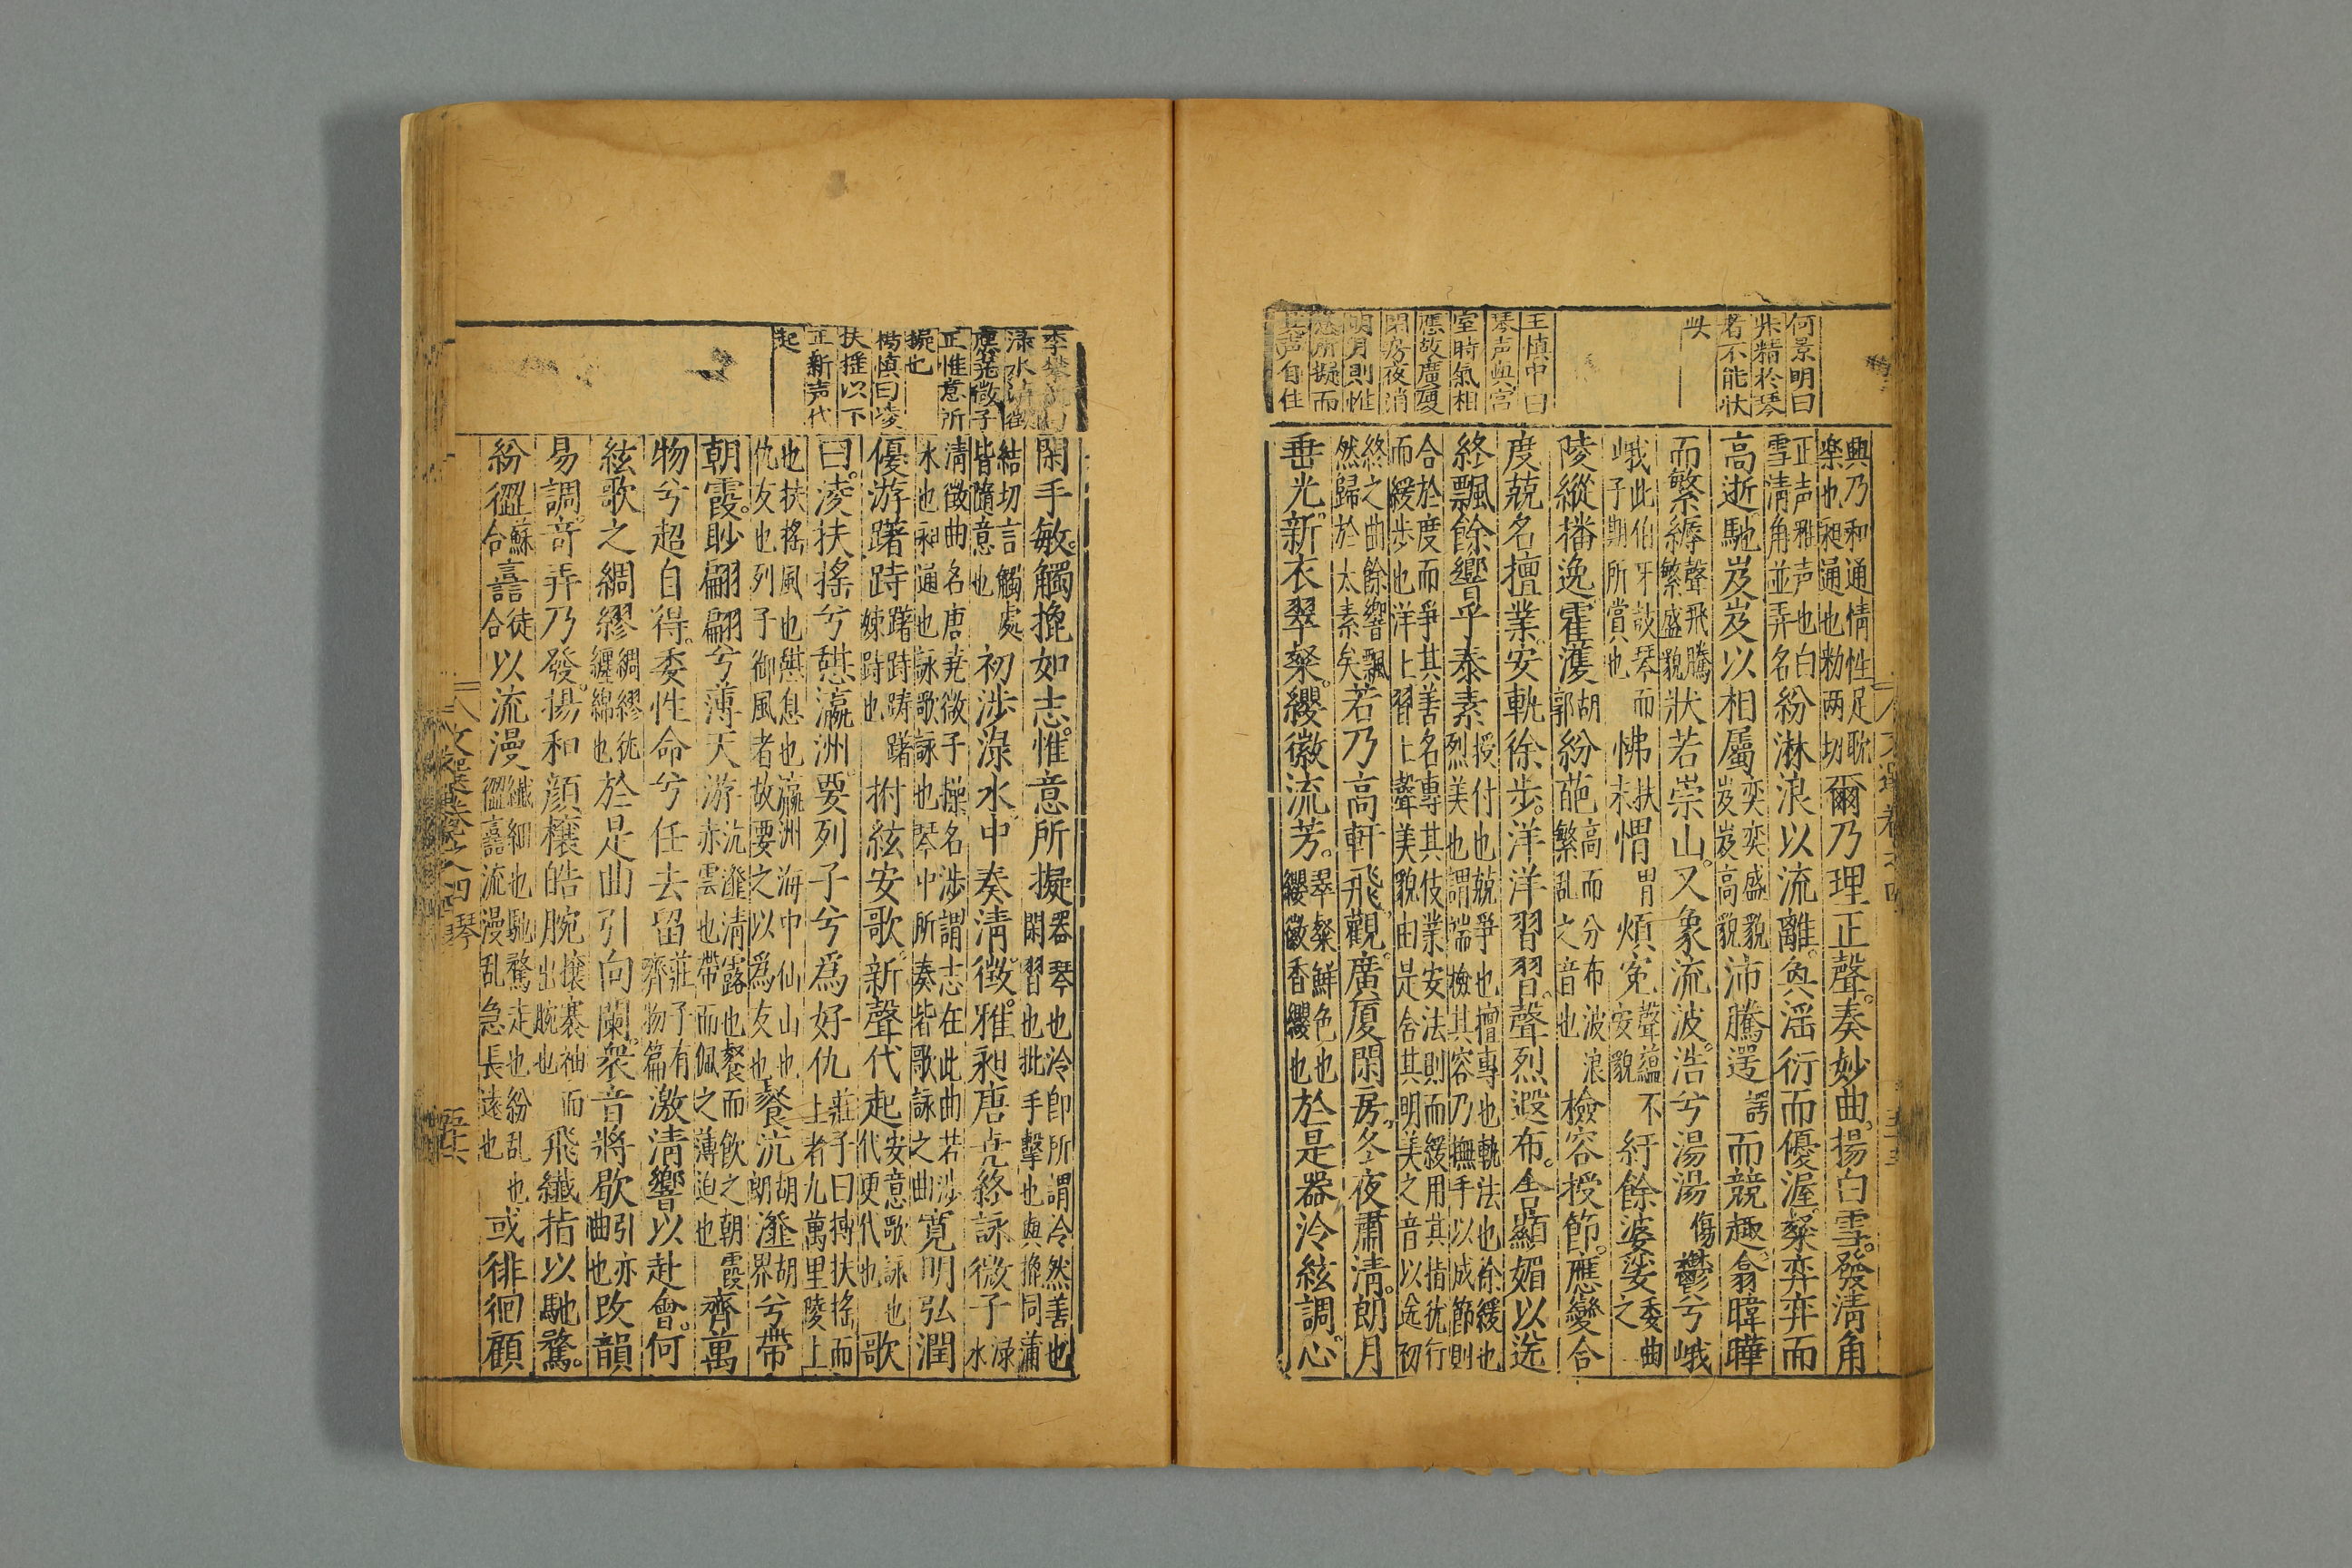 何景明曰
精於琴
者不能状
王慎中曰
琴声與宮
室時氣相
應故廣厦
閑房夜消
明月則惟
所擬而
其声自佳
興乃和通情性足耽
楽也昶通也勑两切
爾乃理正聲。奏妙曲。揚白雪。發清角
正声雅声也白
雪清角並弄名
紛淋浪以流離。奐淫衍而優渥。粲弈弈而
高逝。馳岌岌以相屬
奕奕盛貌
岌岌高貌
沛騰遌
諤
而競趣翕韡曄
而繁縟
聲飛騰
繁盛貌
狀若崇山。又象流波。浩兮湯湯
傷
鬱兮峨
峨
此伯牙鼓琴而
子期所賞也
怫
扶
末
愲
胃
煩寃
聲蘊不
安貌
紆餘婆娑
委曲
之
陵縱播逸霍濩
胡
郭
紛葩
高而分布波浪
繁乱之音也
檢容授節。應變合
度兢名擅業。安軌徐步。洋洋習習。聲烈遐布。含顯媚以送
終飄餘響乎泰素
授付也兢爭也擅專也軌法也徐緩也
烈美也謂端檢其容乃撫手以成節則
合於度而爭其善名專其伎業安法則而緩用其指犹行
而緩歩也洋上習上聲美貌由是含其明美之音以送初
終之曲餘響飄
然歸於太素矣
若乃高軒飛觀。廣厦閑房。冬夜肅清。朗月
垂光。新衣翠粲。纓徽流芳。
翠粲鮮色也
纓徽香纓也
於是器泠絃調。心
擬也
楊慎曰凌
扶摇以下
正新声代
起
閑手敏。觸㨽如志。惟意所擬
器琴也泠即所謂泠然善也
閑習也批手擊也與㨽同蒲
結切言觸處
皆隨意也
初涉淥水。中奏清徵。雅昶唐堯。終詠微子
淥
水
清徵曲名唐堯微子操名涉謂志在此曲若涉
水也昶通也詠歌詠也琴中所奏皆歌詠之曲
寛明弘潤
優游躇跱
躇跱踌躇
竦跱也
拊絃安歌。新聲代起
安意歌詠也
代更代也
歌
曰。凌扶搖兮憩瀛洲。要列子兮爲好仇
莊子曰摶扶搖而
上者九萬里陵上
也扶搖風也憩息也瀛洲海中仙山也
仇友也列子御風者故要之以爲友也
餐沆
胡
朗
瀣
胡
界
兮帶
朝霞。眇翩翩兮薄天游
沆瀣清露也餐而飲之朝霞
赤雲也帶而佩之薄迫也
齊萬
物兮超自得。委性命兮任去留
莊子有
齊物篇
激清響以赴會。何
絃歌之綢繆
綢繆犹
纏綿也
於是曲引向闌。衆音將歇
引亦
曲也
改韻
易調。竒弄乃發。揚和顔攘皓腕
攘褰袖而
出腕也
飛纖指以馳騖。
紛
蘇
合
徒
合
以流漫
纖細也馳騖走也紛乱也
流漫乱急長遠也
或徘徊顧
琴